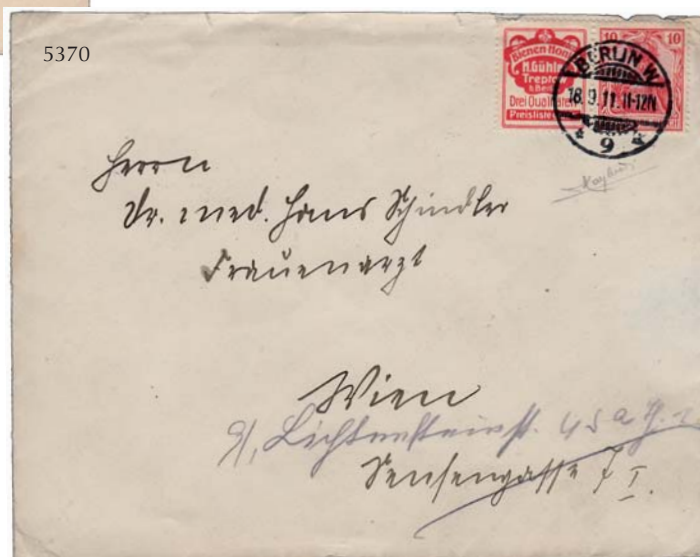 5370
Bienen Honi
H. Gühle
Treptow
Drei Qualitäten
Preisliste
10 10
BERLIN W
18.9.11.11-12N
* 9 *
Herrn
Dr. med. Hans Schindler
Frauenarzt
Wien
Lichtensteinst. 45a
Sensengasse 7 I.